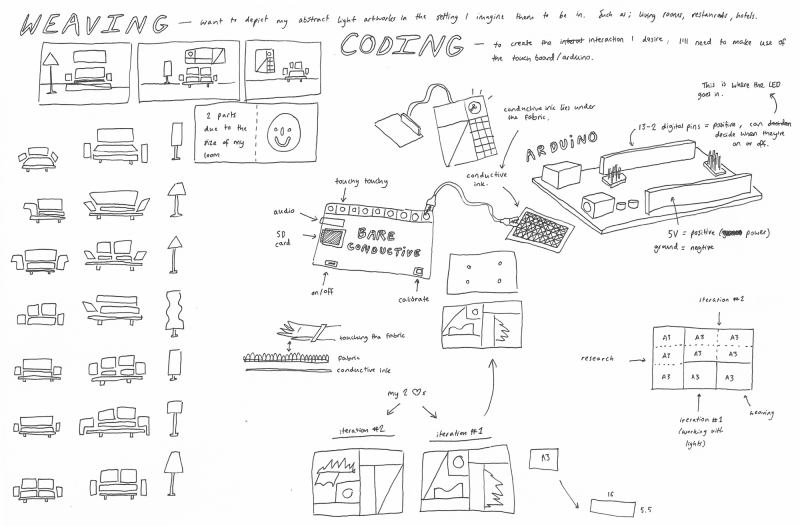 WEAVING – want to depict my abstract light artworks in the setting I imagine them to be in. Such as; living rooms, restaurants, hotels.
CODING – to create the interact interaction I desire, I'll need to make use of
the touch board/arduino.
2 parts
due to the
size of my
loom
conductive ink lies under
the fabric.
This is where the LED
goes in.
13-2 digital pins = positive, can
decide when they're
on or off.
ARDUINO
conductive
ink.
touchy touchy
audio
SD
card
BARE
CONDUCTIVE
on/off
calibrate
5V = positive ( power)
ground = negtive
touching the fabric
fabric
conductive ink
iteration #2
research
A3 A3 A3
A3 A3 A3
A3 A3 A3
iteration #1
(working with
lights)
weaving
my 2 ♡s
iteration #2
iteration #1
A3
16
5.5